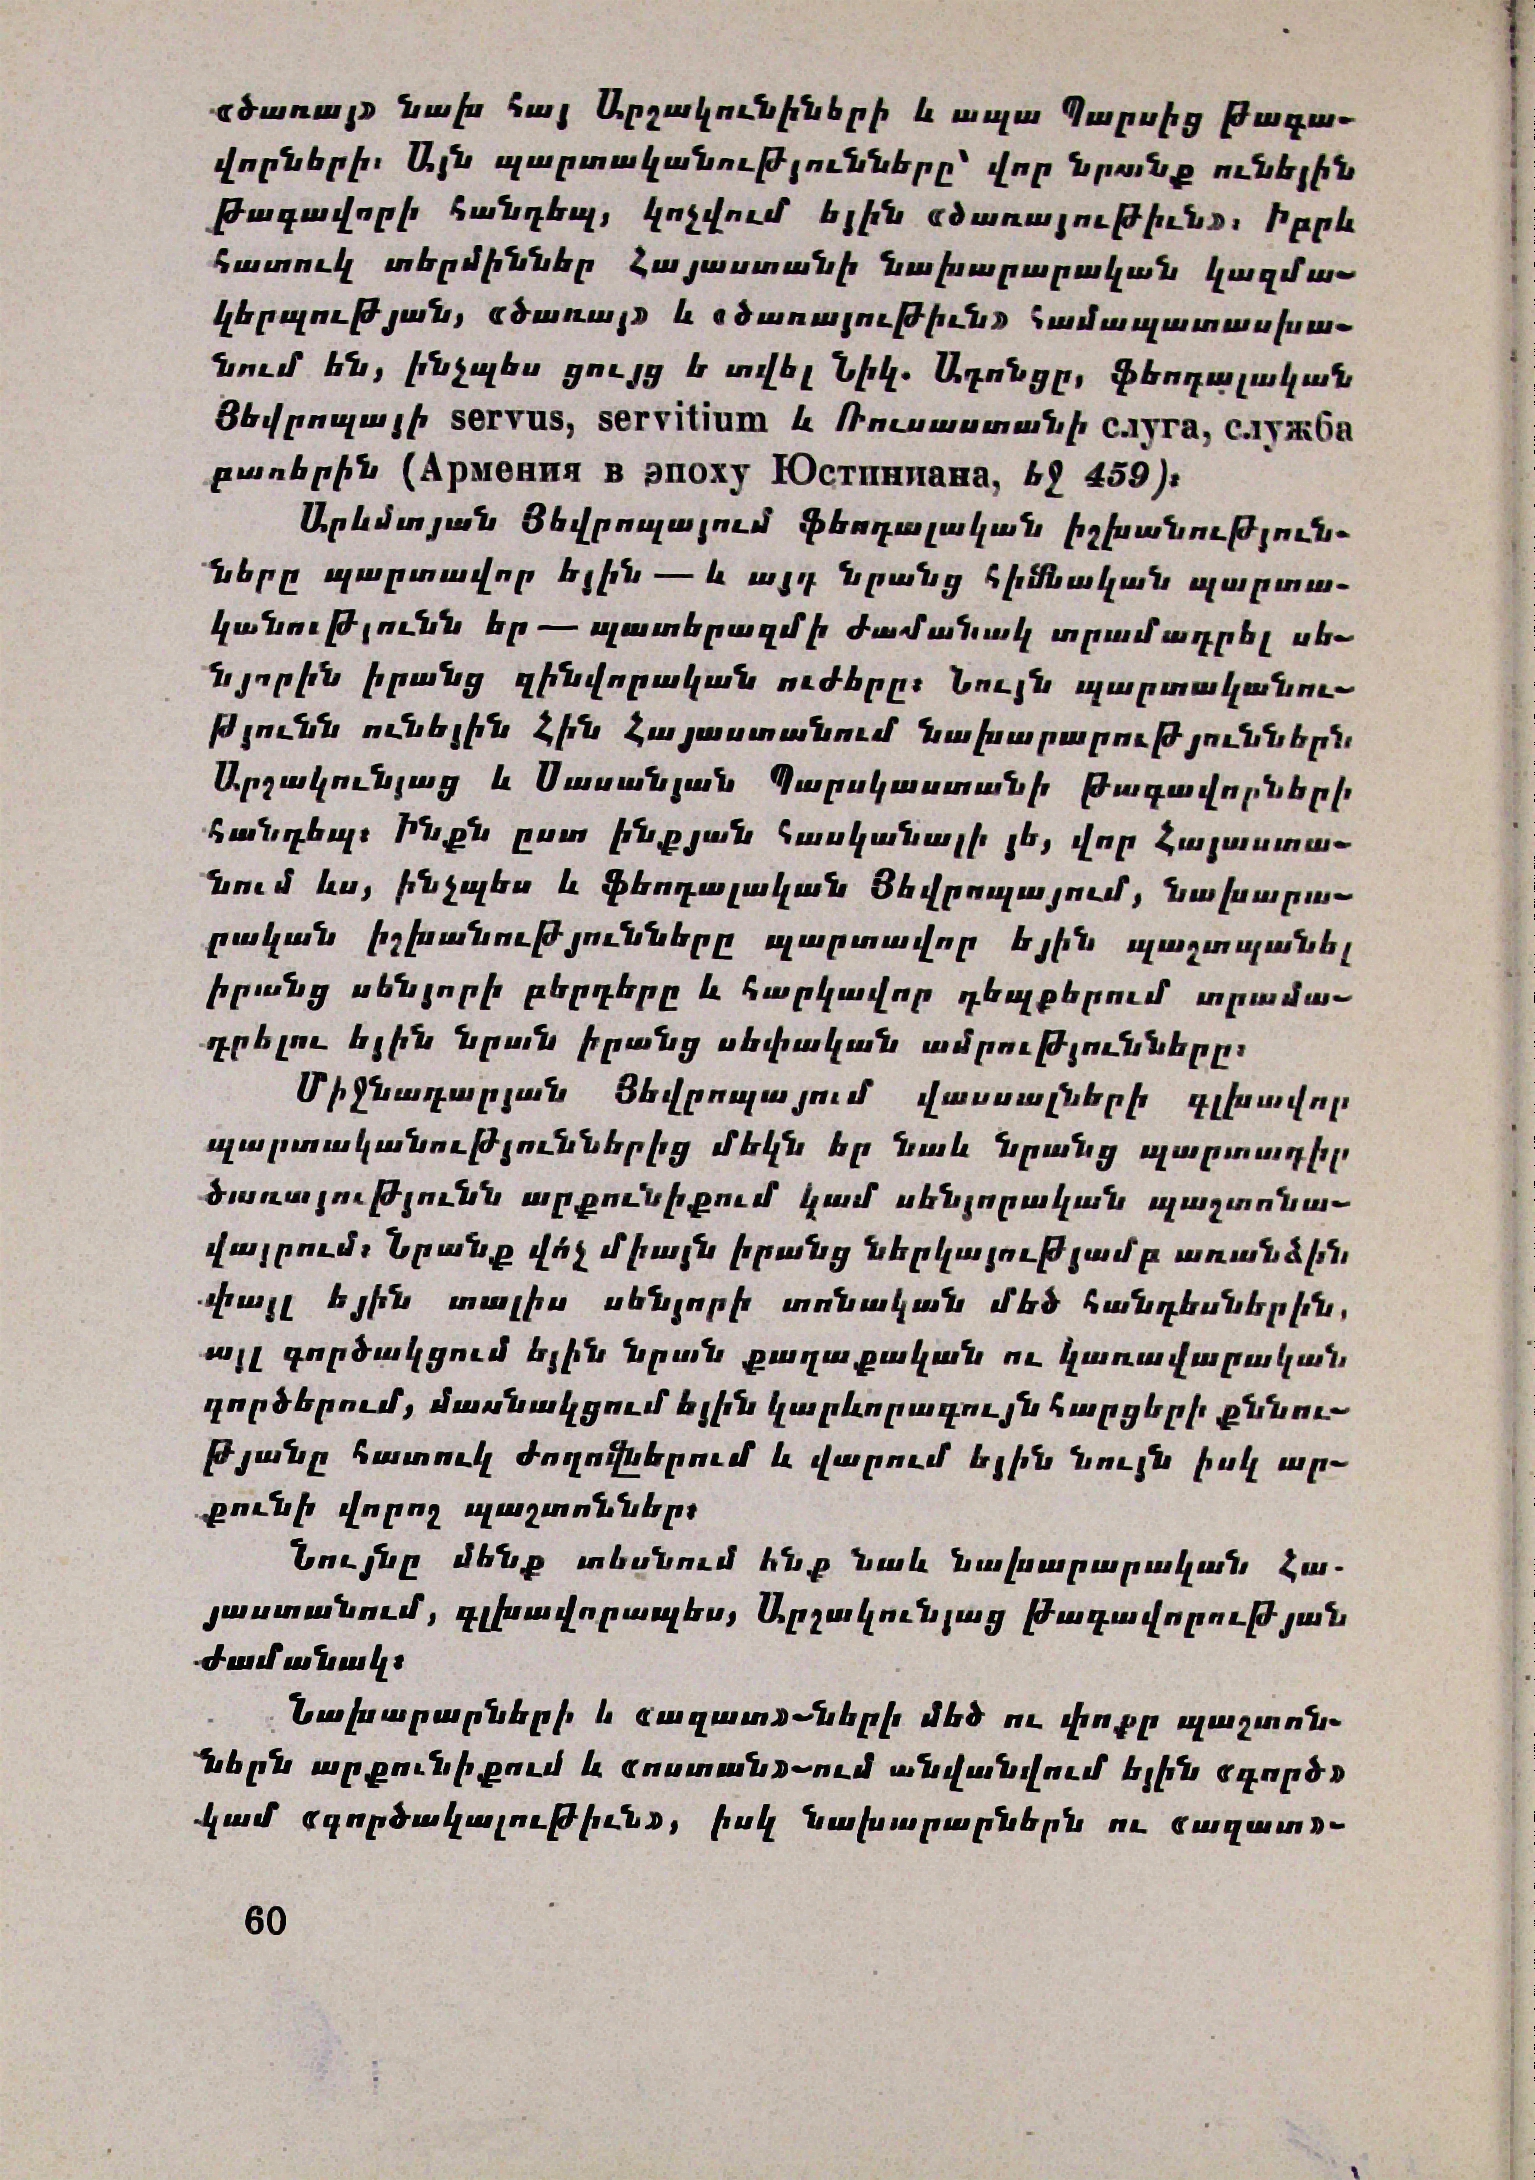 «ծառայ» նախ հայ Արշակունիների և ապա Պարսից թագա-
վորների։ Այն պարտականությունները՝ վոր նրանք ունեյին
թագավորի հանդեպ, կոչվում եյին «ծառայութիւն»։ Իբրև
հատուկ տերմիններ Հայաստանի նախարարական կազմա-
կերպության, «ծառայ» և «ծառայութիւն» համապատասխա-
նում են, ինչպես ցույց ե տվել Նիկ. Ադոնցը, ֆեոդալական
Յեվրոպայի servus, servitium և Ռուսաստանի слуга, служба
բառերին (Армения в эпоху Юстиниана, եջ 459)։
Արևմտյան Յեվրոպայում ֆեոդալական իշխանություն-
ները պարտավոր եյին — և այդ նրանց հիմնական պարտա-
կանությունն եր — պատերազմի ժամանակ տրամադրել սե-
նյորին իրանց զինվորական ուժերը։ Նույն պարտականու-
թյունն ունեյին Հին Հայաստանում նախարարություններն
Արշակունյաց և Սասանյան Պարսկաստանի թագավորների
հանդեպ։ Ինքն ըստ ինքյան հասկանալի յե, վոր Հայաստա-
նում ևս, ինչպես և ֆեոդալական Յեվրոպայում, նախարա-
րական իշխանությունները պարտավոր եյին պաշտպանել
իրանց սենյորի բերդերը և հարկավոր դեպքերում տրամա-
դրելու եյին նրան իրանց սեփական ամրությունները։
Միջնադարյան Յեվրոպայում վասսալների գլխավոր
պարտականություններից մեկն եր նաև նրանց պարտադիր
ծառայությունն արքունիքում կամ սենյորական պաշտոնա-
վայրում։ Նրանք վո՛չ միայն իրանց ներկայությամբ առանձին
փայլ եյին տալիս սենյորի տոնական մեծ հանդեսներին,
այլ գործակցում եյին նրան քաղաքական ու կառավարական
գործերում, մասնակցում եյին կարևորագույն հարցերի քննու-
թյանը հատուկ ժողովներում և վարում եյին նույն իսկ ար-
քունի վորոշ պաշտոններ։
Նույնը մենք տեսնում ենք նաև նախարարական Հա-
յաստանում, գլխավորապես, Արշակունյաց թագավորության
ժամանակ։
Նախարարների և «ազատ»-ների մեծ ու փոքր պաշտոն-
ներն արքունիքում և «ոստան»-ում անվանվում եյին «գործ»
կամ «գործակալութիւն», իսկ նախարարներն ու «ազատ»-
60